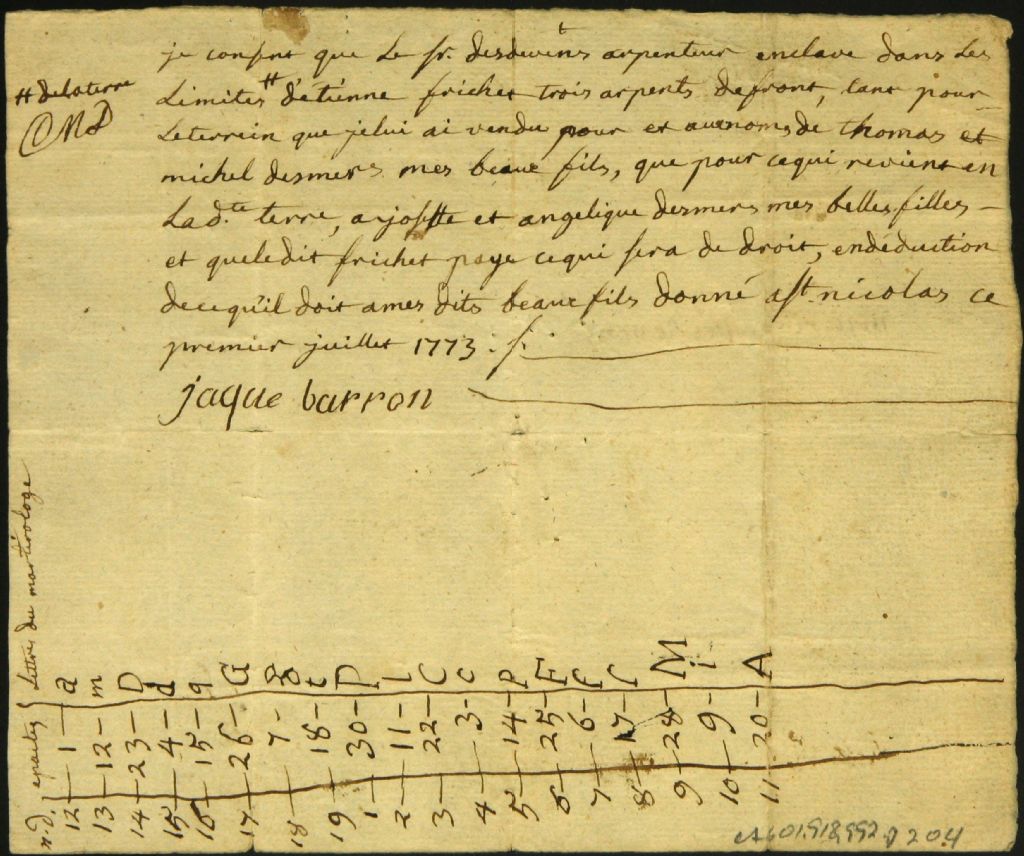 je consent que Le sr. desdevens arpenteur enclave dans Les
# de la terre
Limites # d'étienne frichet trois arpents defront, tant pour
Leterrein que jelui ai vendu pour et au noms de thomas et
michel desmers mes beaux fils, que pour cequi revient en
Lad.te terre, a josette et angelique desmers mes belles filles –
et queledit frichet paye cequi sera de droit, endéduction
decequ'il doit ames dits beaux fils donné a st. nicolas ce
premier juillet 1773 ./.
jaque barron
n.d. epactes Lettres du martirologe
12 — 1 — a
13 — 12 — m
14 — 23 — D
15 — 4 — d
16 — 15 — q
17 — 26 — G
18 — 7 – g
18 – t
19 — 30 — P
1 — 11 — l
2 — 22 — C
3 — 3 – c
4 — 14 — P
5 — 25 — E
6 — 6 — f
7 — 17 — r
8 — 28 — M
9 — 9 — i
10 — 20 — A
11
204